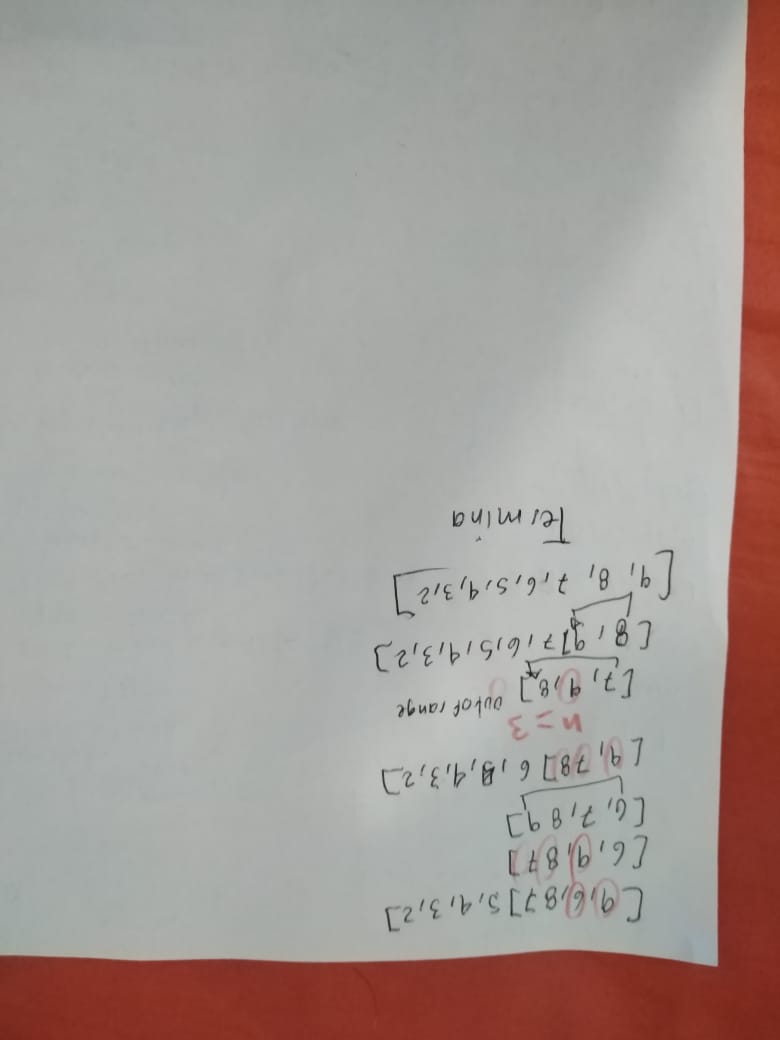 [9,6,8,7] 5,4,3,2]
[6,9,8,7]
[6,7,8 9]
[9,78] 6,5,4,3,2]
n=3
[7,9,8] out of range
[8,9] 7,6,5,4,3,2]
[9,8,7,6,5,4,3,2]
Termina